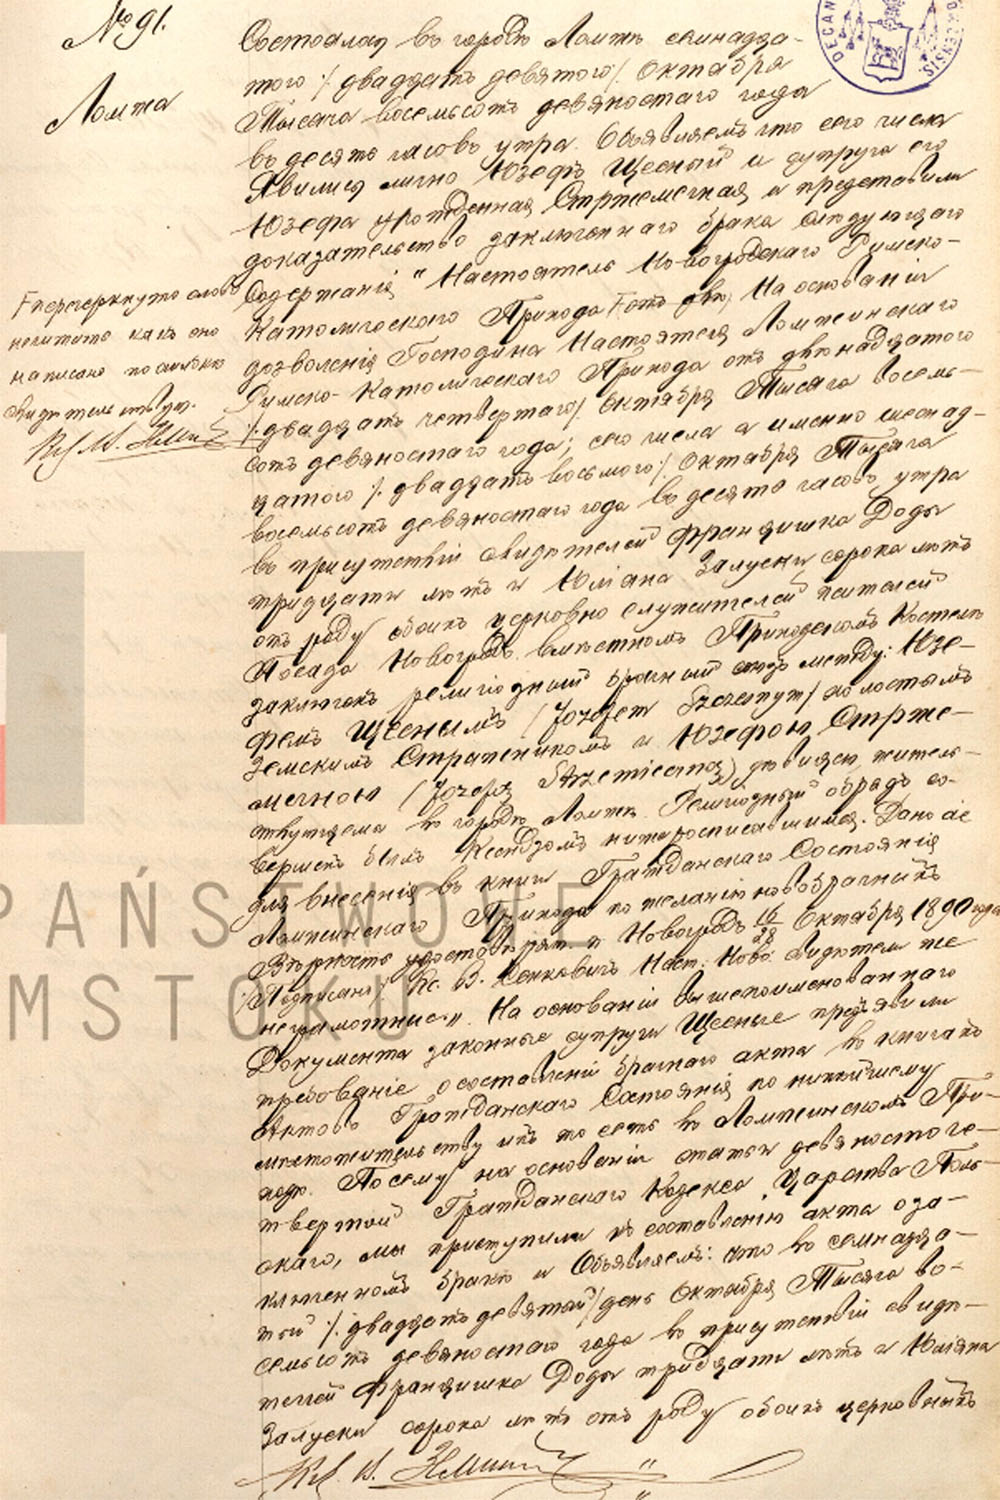 № 91.
Ломжа
Состоялось въ городѣ Ломжѣ семнадца-
того /: двадцать девятого :/ Октября
Тысяча восемьсотъ девяностаго года
въ десять часовъ утра. Объявляемъ что сего числа
Явились лично Юзефъ Щесный и супруга его
Юзефа урожденная Стржемечная и представили
доказательство заключеннаго брака слѣдующаго
Содержанія " Настоятель Новогродскаго Римско-
Католическаго Прихода На основаніи
дозволенія Господина Настоятеля Ломжинскаго
Римско-Католическаго Прихода отъ двѣнадцатого
/: двадцать четвертаго :/ Октября Тысяча восемь-
сотъ девяностаго года; сего числа а именно шестнад-
цатого /: двадцать восьмого :/ Октября Тысяча
восемьсотъ девяностаго года въ десять часовъ утра
въ присутствіи свидѣтелей Францишка Доды
тридцати лѣтъ и Юліана Залуски сорока лѣтъ
отъ роду обоихъ церковно служителей жителей
Посада Новогродъ. въ мѣстномъ Приходскомъ Костелѣ
заключенъ религіозный брачный союзъ между: Юзе-
фемъ Щеснымъ /Józefem Szczesnym/ холостымъ
Земскимъ Стражникомъ и Юзефою Стрже-
мечною /Józefą Strzemieczną/ дѣвицею, житель-
ствующею въ городѣ Ломжѣ. Религіозный обрядъ со-
вершенъ былъ Ксендзомъ нижеросписавшимся. Дано сіе
для внесенія въ книги Гражданскаго Состоянія
Ломжинскаго Прихода по желанію новобрачныхъ
Вѣрность удостовѣряю. п. Новогродъ 16/28 Октября 1890 года
/:Подписано:/ Кс. В. Наст. Ново. Свидѣтели же
неграмотные". На основаніи вышепоименованнаго
Документа законные супруги Щесные предъявили
требованіе о составленіи брачнаго акта въ книгахъ
Актовъ Гражданскаго Состоянія по нынѣшнему
мѣстожительству ихъ то есть въ Ломжинскомъ При-
ходѣ. Посему на основаніи статьи девяносто че-
твертой Гражданскаго Кодекса Царства Поль-
скаго, мы приступили къ составленію акта о за-
ключенномъ бракѣ и Объявляемъ: что въ семнадца-
тый /: двадцать девятый :/ день Октября Тысяча во-
семьсотъ девяностаго года въ присутствіи свидѣ-
телей Францишка Доды тридцати лѣтъ и Юліана
Залуски сорока лѣтъ отъ роду обоихъ церковныхъ
перечеркнуто слово
нечитать какъ оно
написано по ошибкѣ
свидѣтельствую.
PAŃSTWOWE
MSTOKU